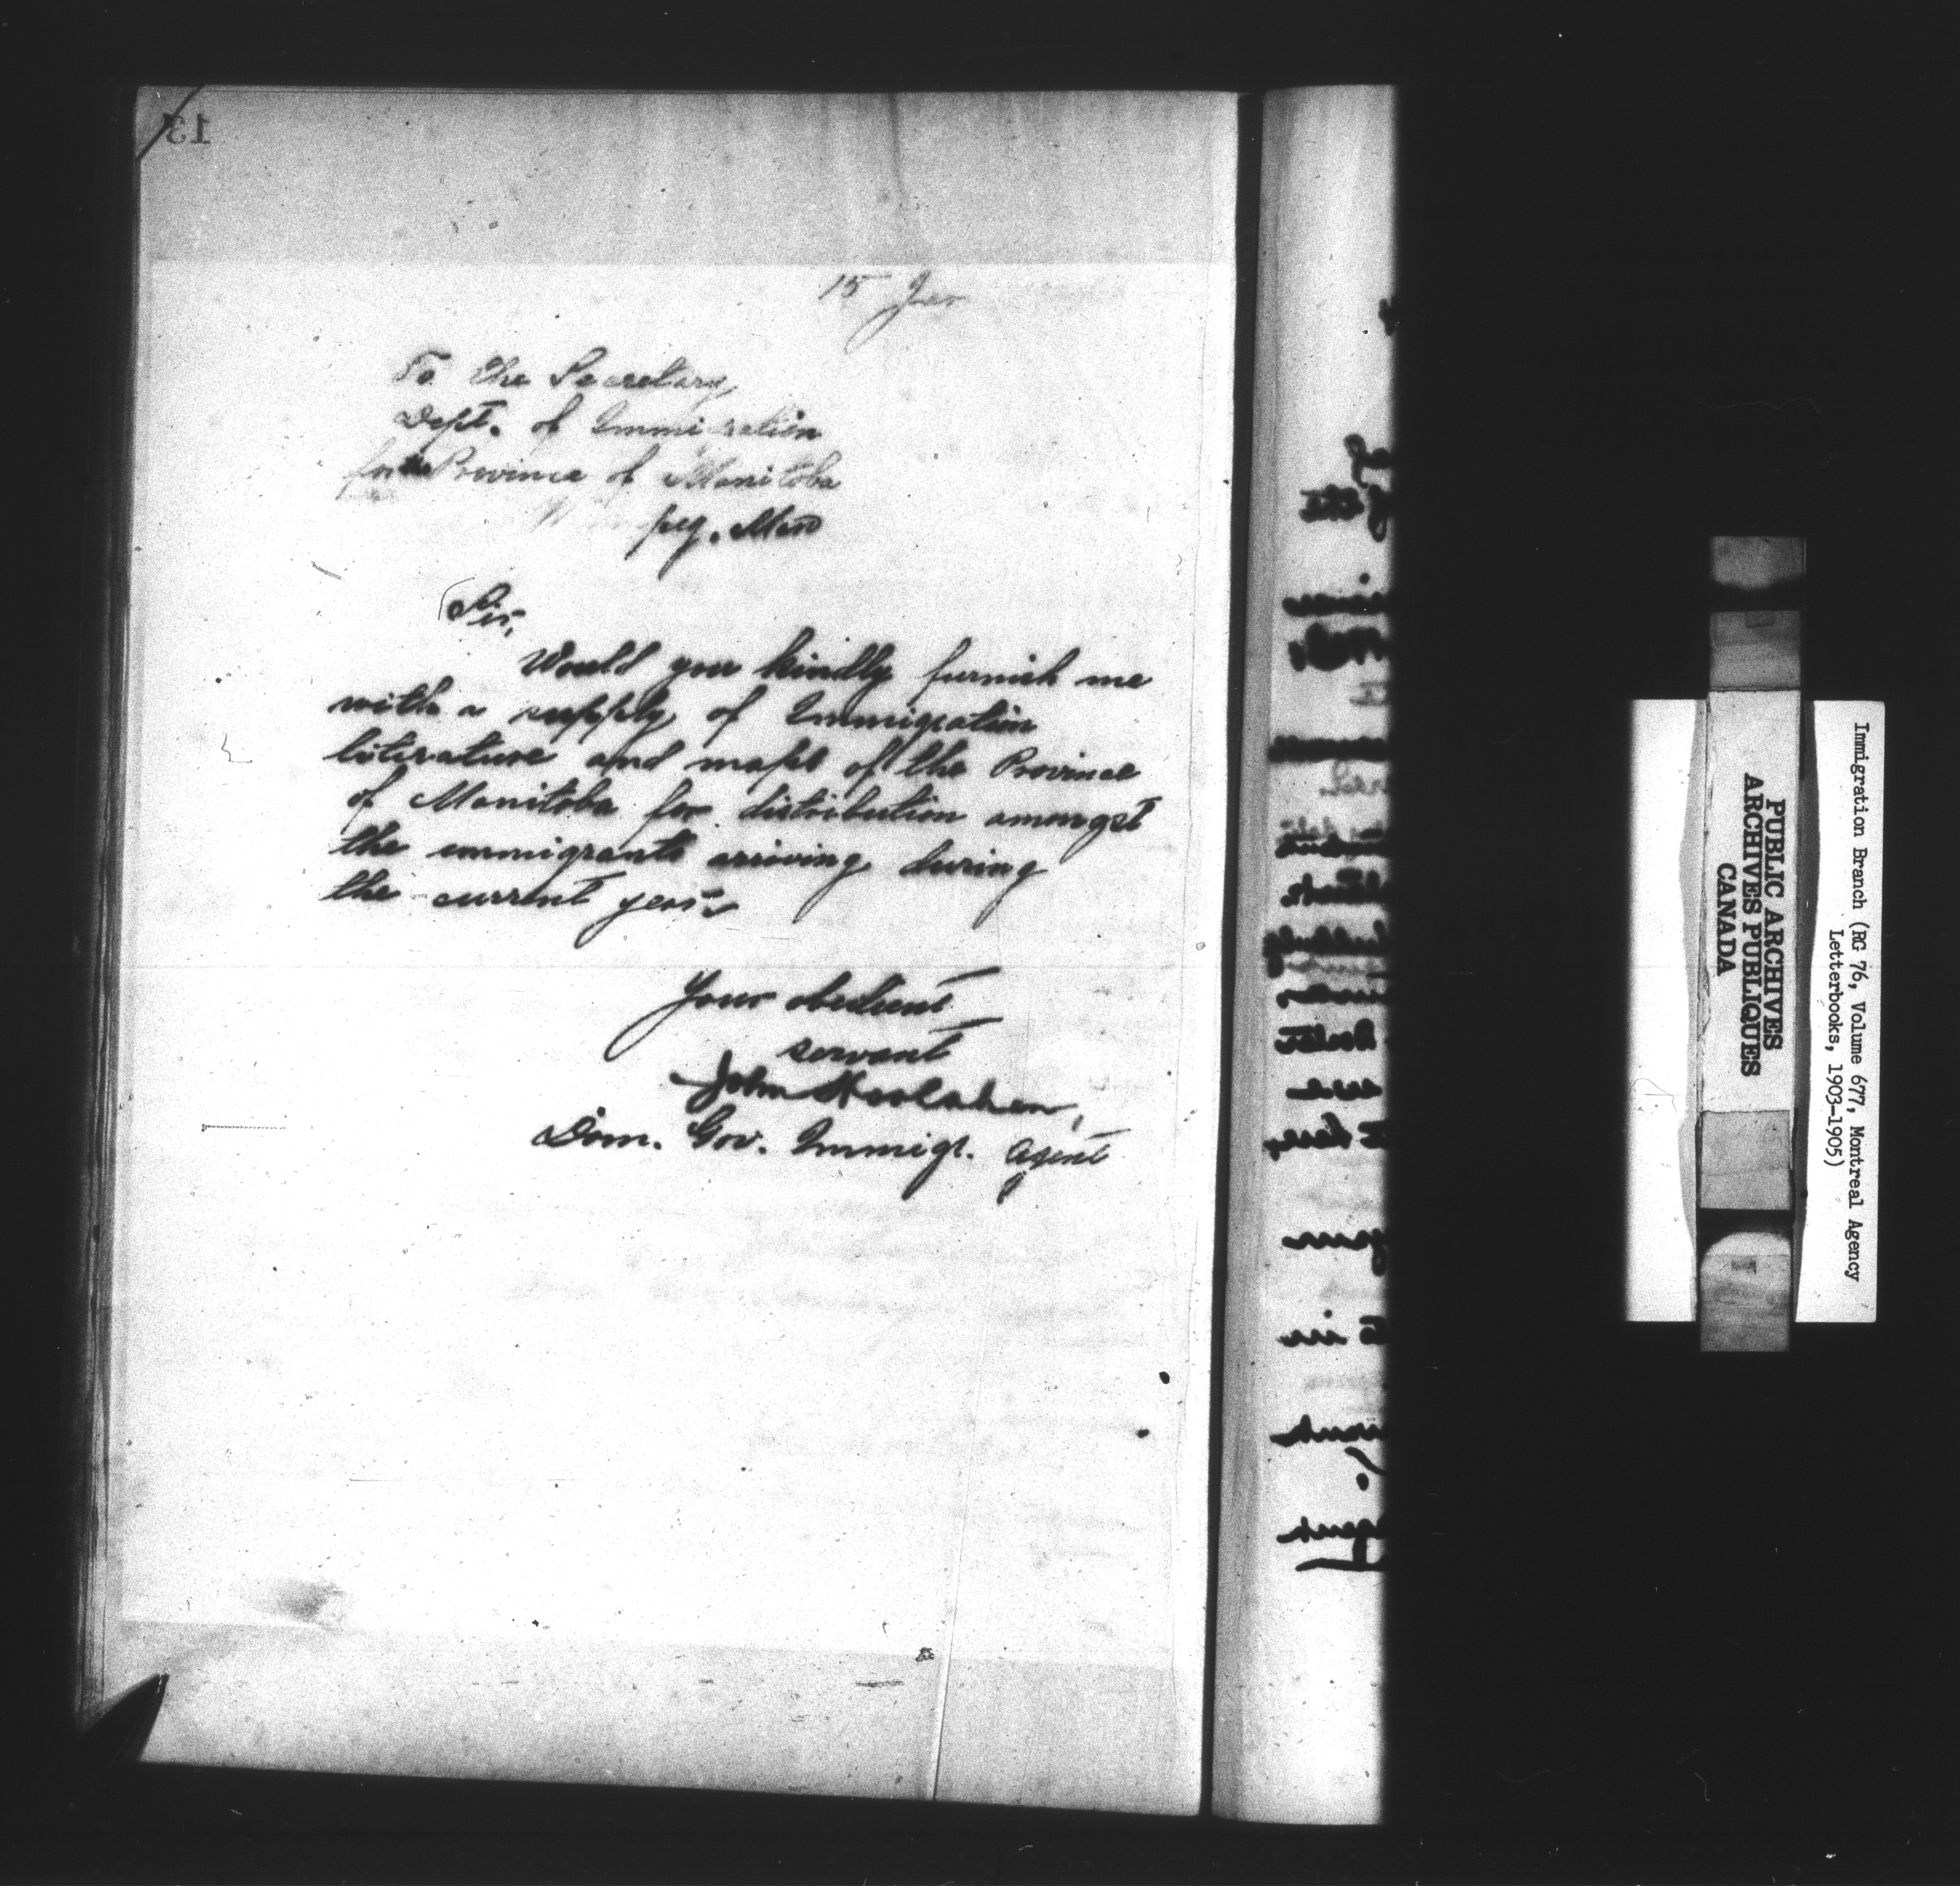 15 Jan
To the Secretary,
Dept. of Immigration
for the Province of Manitoba
peg. Man
Sir,
Would you kindly furnish me
with a supply of Immigration
literature and maps of the Province
of Manitoba for distribution amongst
the immigrants arriving during
the current year.
Your obedient
servant
John Hoolahan,
Dom. Gov. Immigr. Agent
PUBLIC ARCHIVES
ARCHIVES PUBLIQUES
CANADA
Immigration Branch (RG 76, Volume 677, Montreal Agency
Letterbooks, 1903-1905)